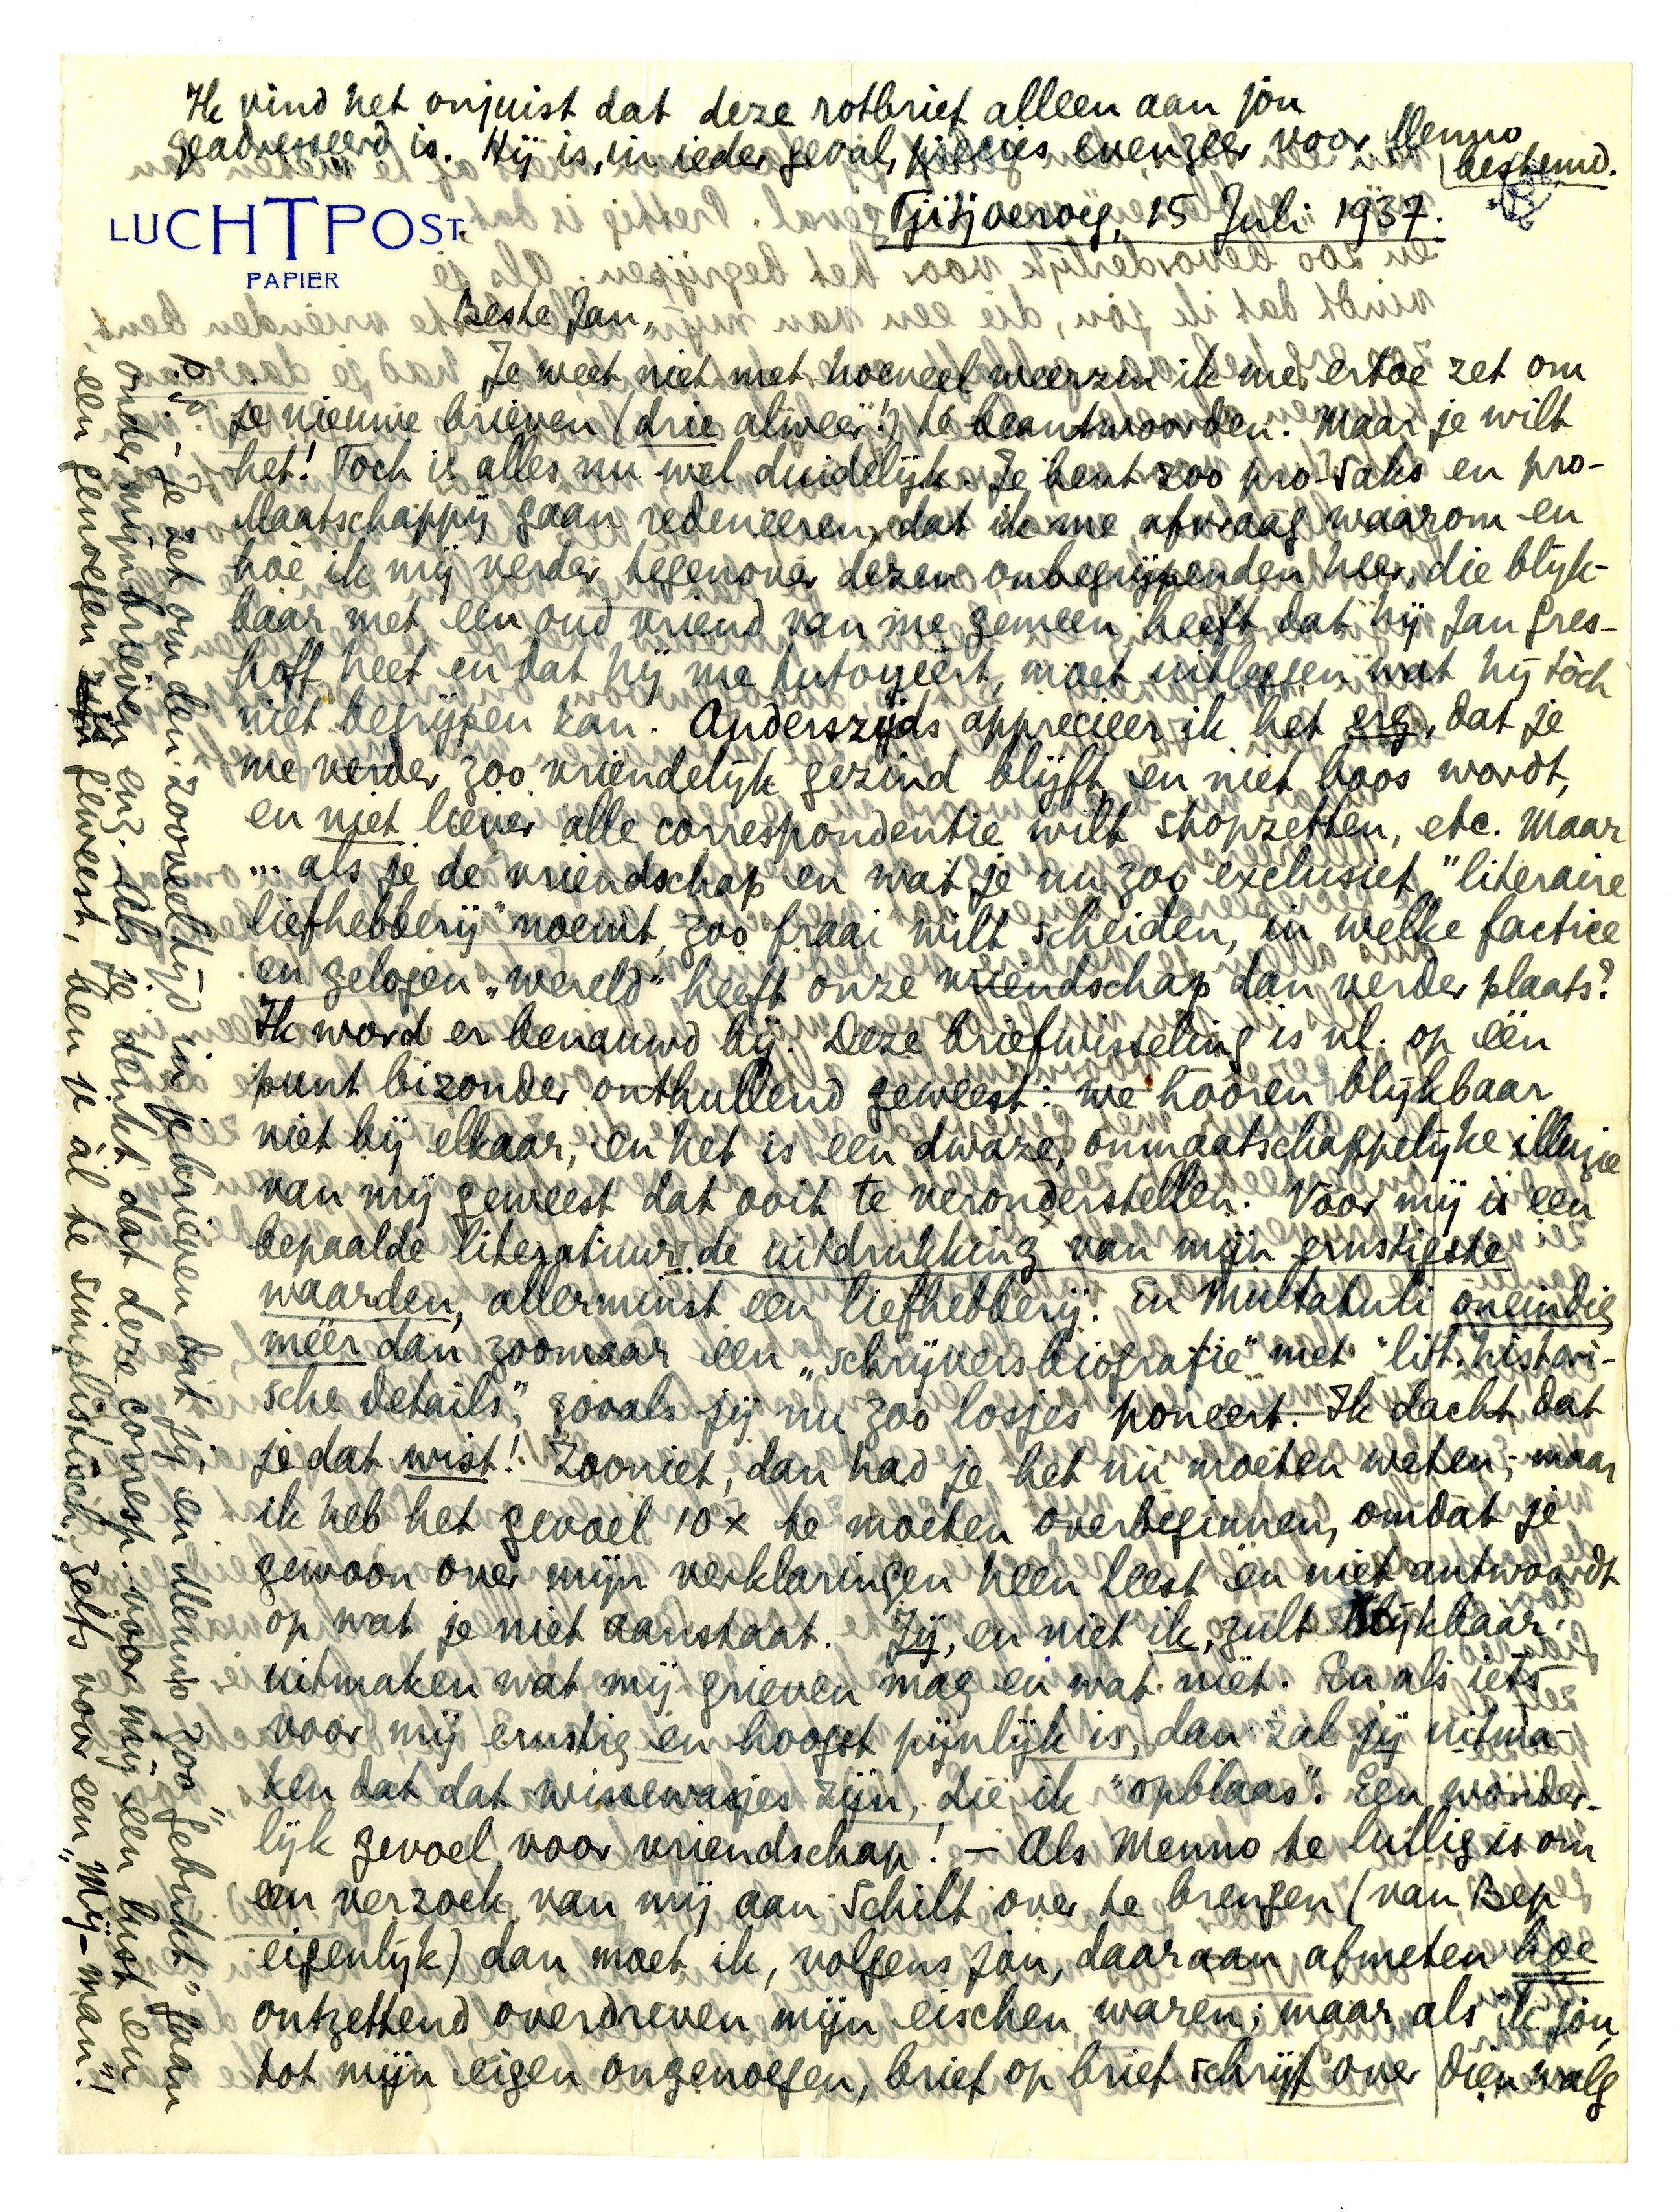 Ik vind het onjuist dat deze rotbrief alleen aan jou
geadresseerd is. Hij is, in ieder geval, precies evenzeer voor Menno
bestemd.
LUCHTPOST
PAPIER
Tjitjoeroeg, 15 Juli 1937.
Beste Jan,
Je weet niet met hoeveel weerzin ik me ertoe zet om
je nieuwe brieven (drie alweer!) te beantwoorden. Maar je wilt
het! Toch is alles nu wel duidelijk. Je bent zoo pro-Saks en pro-
Maatschappij gaan redeneeren, dat ik me afvraag waarom en
hoe ik mij verder tegenover dezen onbegrijpenden heer, die blijk-
baar met een oud vriend van me gemeen heeft dat hij Jan Gres-
hoff heet en dat hij me tutoyeert, moet uitleggen wat hij tòch
niet begrijpen kan. Anderszijds apprecieer ik het erg, dat je
me verder zoo vriendelijk gezind blijft en niet boos wordt,
en niet liever alle correspondentie wilt stopzetten, etc. Maar
... als je de vriendschap en wat je nu zoo exclusief "literaire
liefhebberij" noemt, zoo fraai wilt scheiden, in welke factice
en gelogen „wereld" heeft onze vriendschap dan verder plaats?
Ik word er benauwd bij. Deze briefwisseling is nl. op één
punt bizonder onthullend geweest: we hooren blijkbaar
niet bij elkaar, en het is een dwaze, onmaatschappelijke illuzie
van mij geweest dat ooit te veronderstellen. Voor mij is een
bepaalde literatuur de uitdrukking van mijn ernstigste
waarden, allerminst een liefhebberij. En Multatuli oneindig
méér dan zoomaar een „schrijversbiografie" met "litt. histori-
sche details", zooals jij nu zoo losjes poneert. Ik dacht dat
je dat wist! Zooniet, dan had je het nu moeten weten; maar
ik heb het gevoel 10 x te moeten overbeginnen, omdat je
gewoon over mijn verklaringen heen leest en niet antwoordt
op wat je niet aanstaat. Jij, en niet ik, zult blijkbaar
uitmaken wat mij grieven mag en wat niet. En als iets
voor mij ernstig en hoogst pijnlijk is, dan zal jij uitma-
ken dat dat wissewasjes zijn, die ik "opblaas". Een wonder-
lijk gevoel voor vriendschap! – Als Menno te lullig is om
een verzoek van mij aan Schilt over te brengen (van Bep
eigenlijk) dan moet ik, volgens jou, daaraan afmeten hoe
ontzettend overdreven mijn eischen waren; maar als ik jou,
tot mijn eigen ongenoegen, brief op brief schrijf over dien walg
P.S. Je zet om den zooveeltijd in je brieven dat jij en Menno zoo "gebukt" gaan
onder mijn brieven enz. Als je denkt dat deze corresp. voor mij een lust en
een genoegen is geweest, ben je àl te simplistisch, zelfs voor een „Mij-man"!